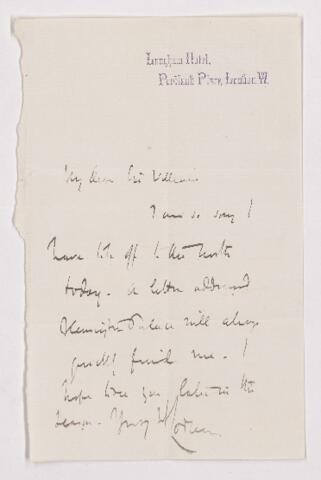 Langham Hotel,
Portland Place, London W.
My dear Sir William
I am so sorry I
have to be off to the North
today. A letter addressed
Kensington Palace will always
quickly find me. I
hope to see you later in the
season. Yrs